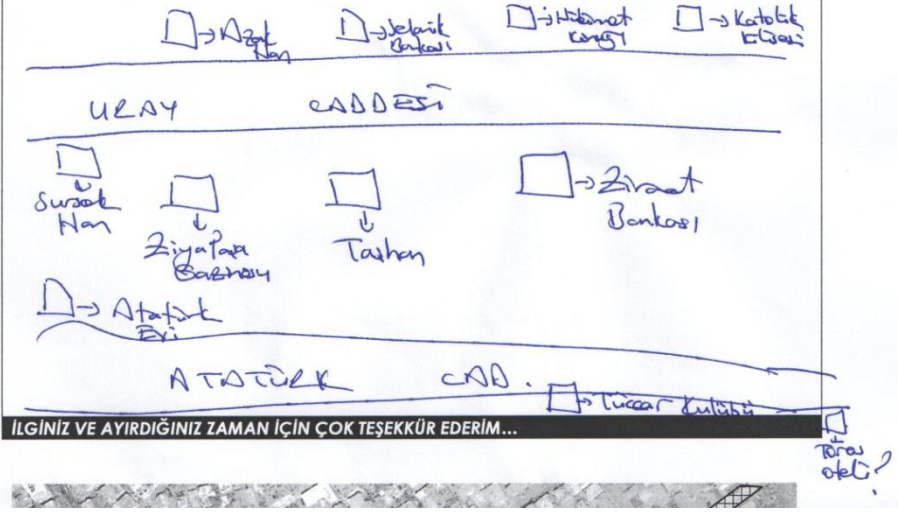 Azak
Han
Selanik
Bankası
Hükümet
Konağı
Katolik
Kilisesi
URAY CADDESİ
Sursok
Han
Ziya Paşa
Gazinosu
Taşhan
Ziraat
Bankası
Atatürk
Evi
ATATÜRK CAD.
Tüccar Kulübü
İLGİNİZ VE AYIRDIĞINIZ ZAMAN İÇİN ÇOK TEŞEKKÜR EDERİM...
Toros
oteli?